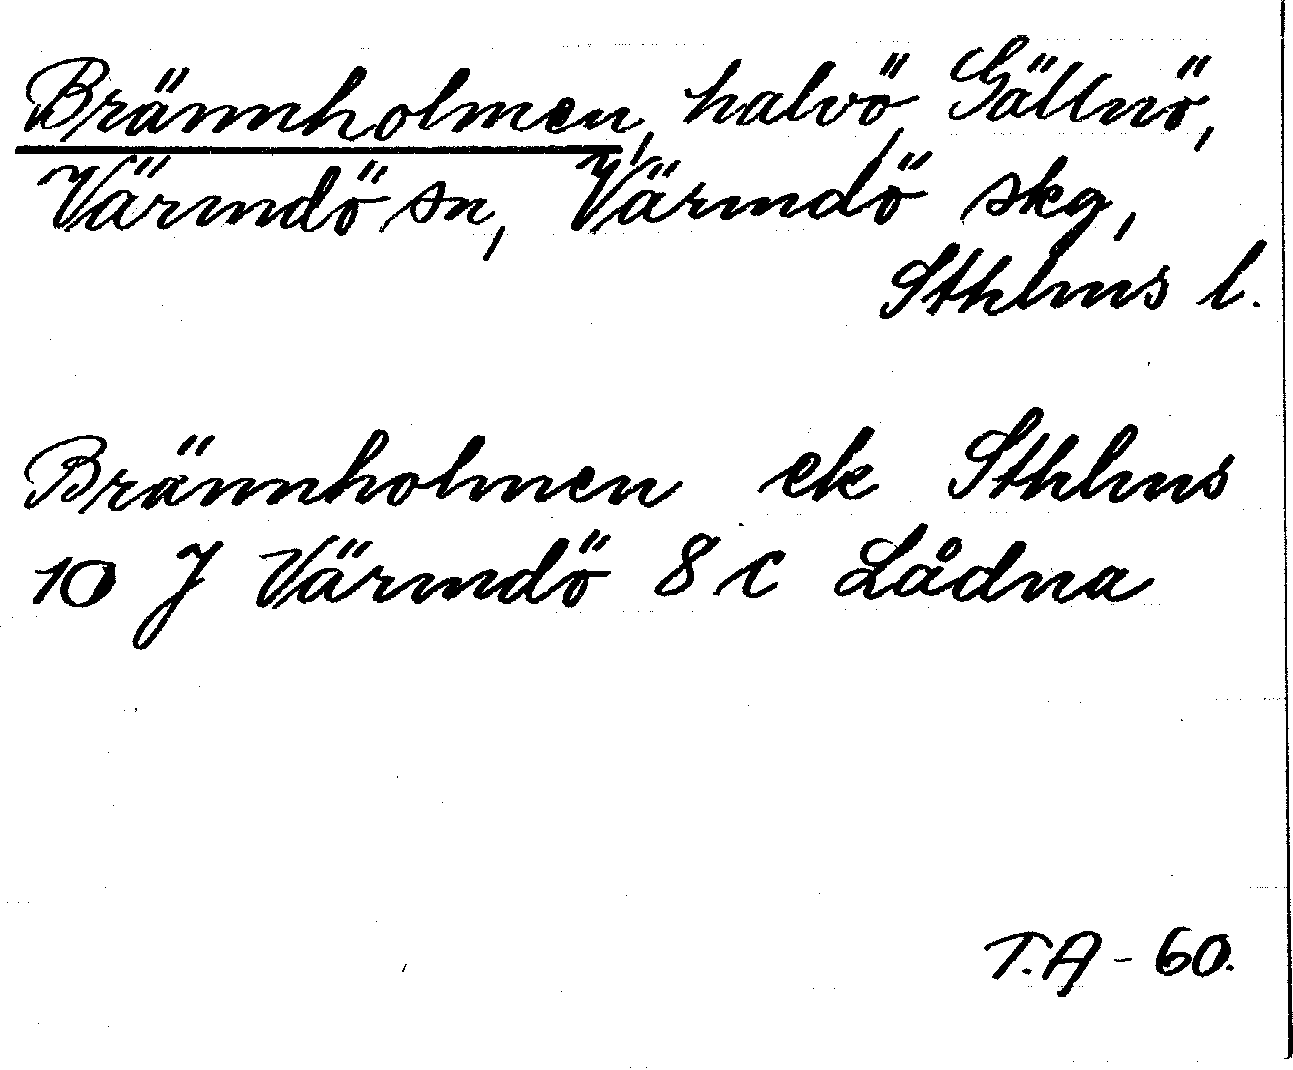 Brännholmen, halvö, Gällnö,
Värmdö sn, Värmdö skg,
Sthlms l.
Brännholmen ek Sthlms
10 J Värmdö 8 c Lådna
T.A - 60.